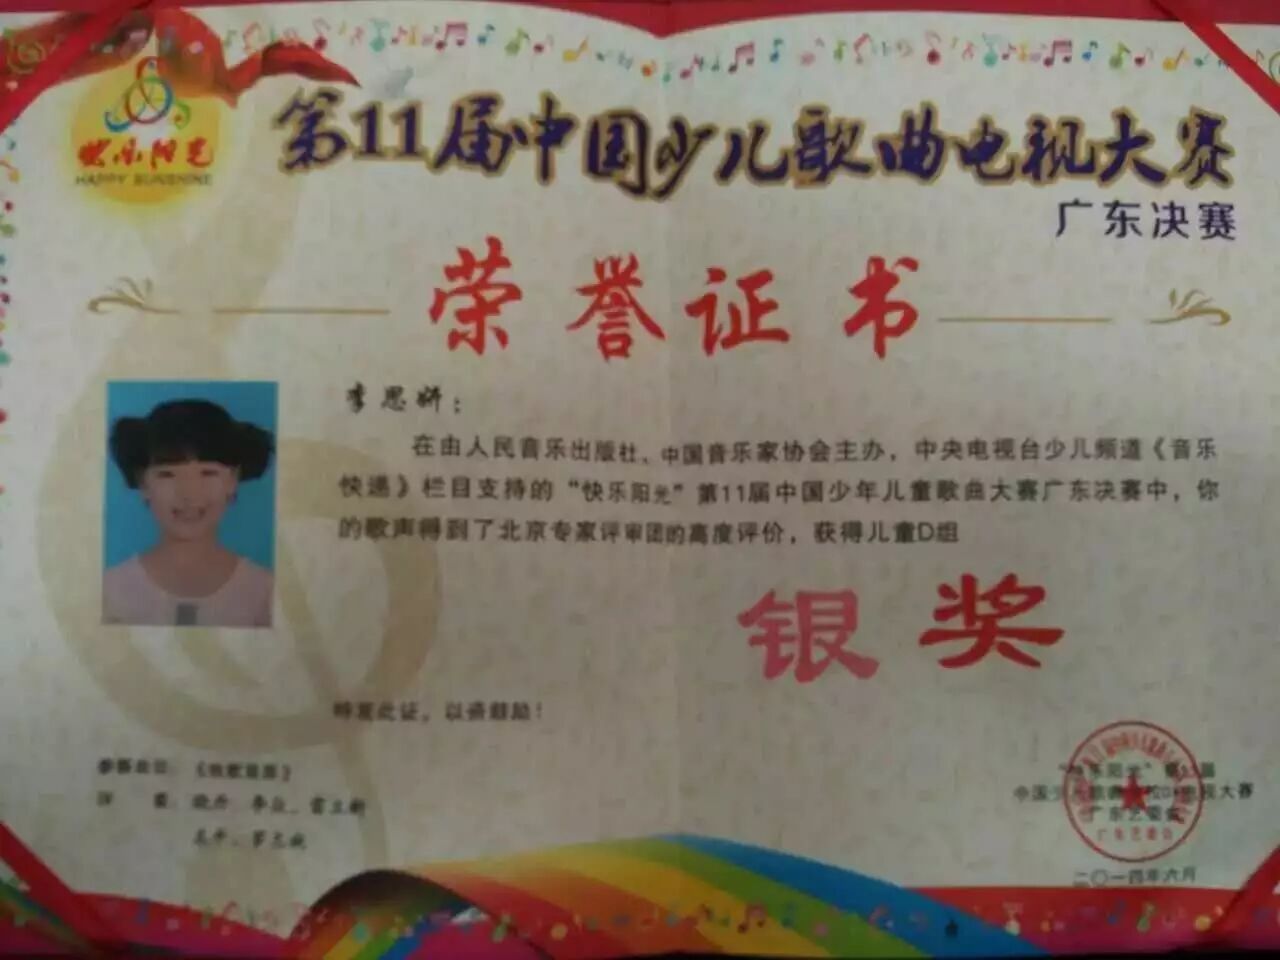 快乐阳光
HAPPY SUNSHINE
第11届中国少儿歌曲电视大赛
广东决赛
荣誉证书
李思妍：
在由人民音乐出版社、中国音乐家协会主办，中央电视台少儿频道《音乐
快递》栏目支持的“快乐阳光”第11届中国少年儿童歌曲大赛广东决赛中，你
的歌声得到了北京专家评审团的高度评价，获得儿童D组
银奖
特发此证，以资鼓励！
参赛曲目：
评委：
广东艺委会
二〇一四年六月